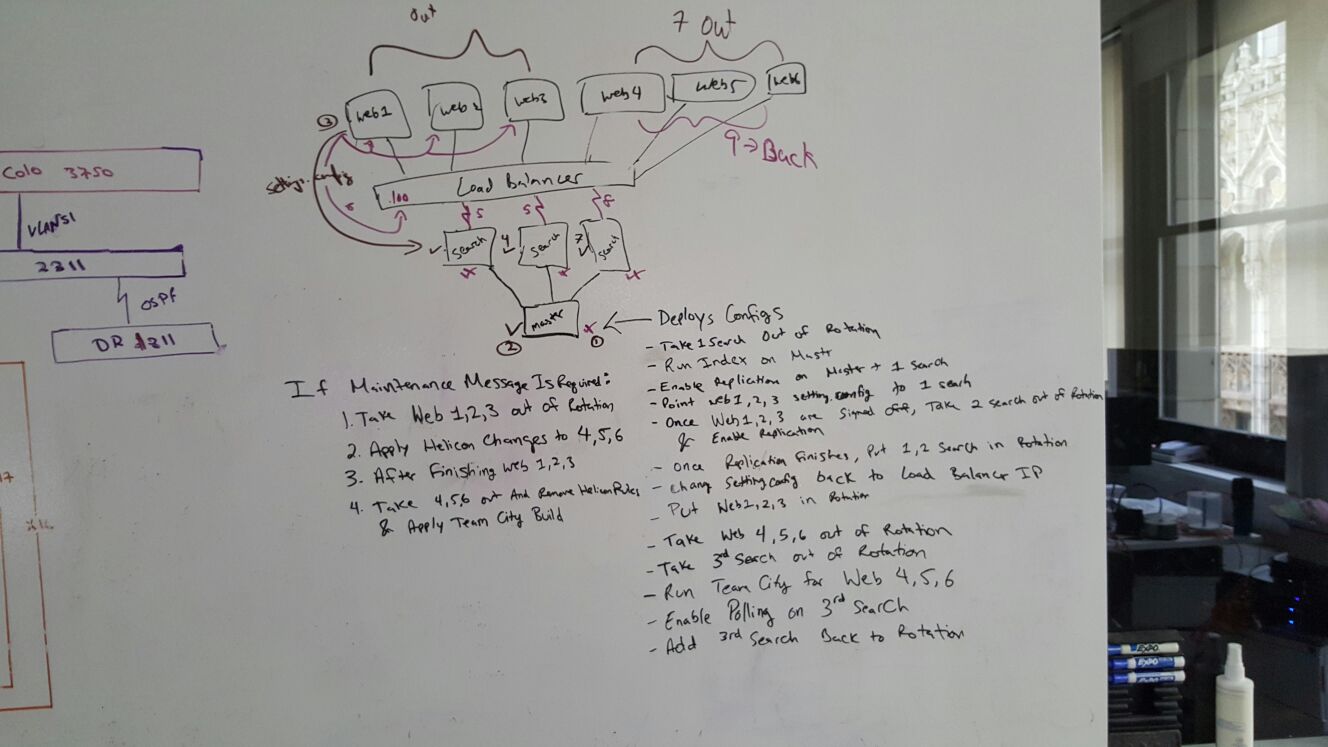 out
7 out
web1
web2
web3
web4
web5
web6
3
9 → Back
settings.config
6
.100
Load Balancer
5
5
8
Search
4
Search
7
Search
Master
2
1
Colo 3750
VLAN51
2811
OSPF
DR 2811
Deploys Configs
- Take 1 Search Out of Rotation
- Run Index on Mastr
- Enable Replication on Master + 1 Search
- Point web1,2,3 setting.config to 1 seach
- Once Web1,2,3 are signed off, Take 2 search out of Rotation
& Enable Replication
- Once Replication Finishes, Put 1,2 Search in Rotation
- Chang Setting.config back to Load Balancer IP
- Put Web1,2,3 in Rotation
- Take Web 4,5,6 out of Rotation
- Take 3rd Search out of Rotation
- Run Team City for Web 4,5,6
- Enable Polling on 3rd Search
- Add 3rd Search Back to Rotation
If Maintenance Message Is Required:
1. Take Web 1,2,3 out of Rotation
2. Apply Helicon Changes to 4,5,6
3. After Finishing web 1,2,3
4. Take 4,5,6 out And Remove Helicon Rules
& Apply Team City Build
EXPO
EXPO